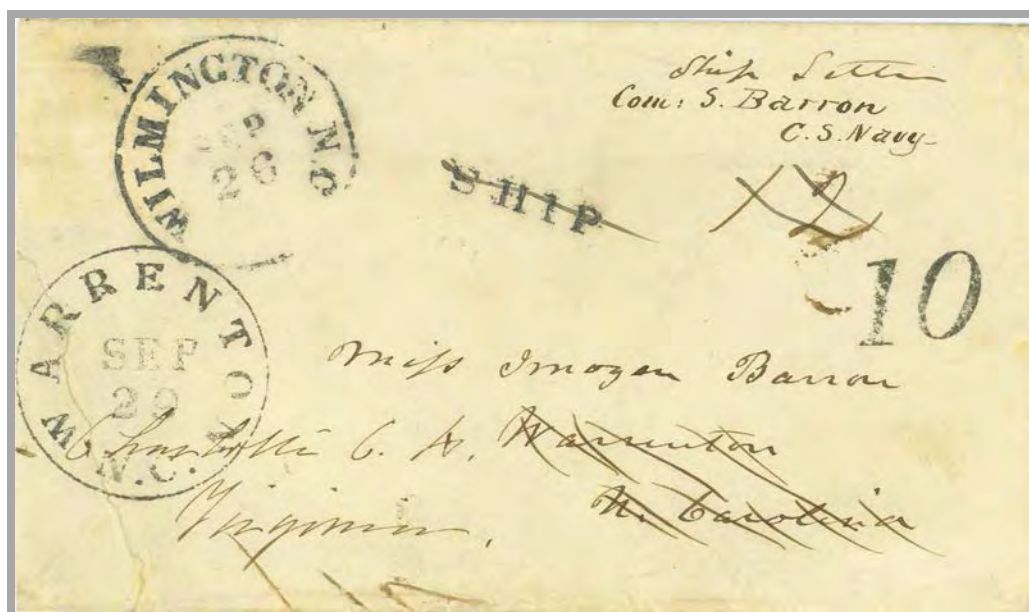 WILMINGTON N.C
SEP
26
Ship Letter
Com: S. Barron
C.S. Navy
SHIP
12
10
WARRENTON
N.C.
SEP
29
Miss Imogen Barron
Charlotte C. H. Warrenton
Virginia, N. Carolina